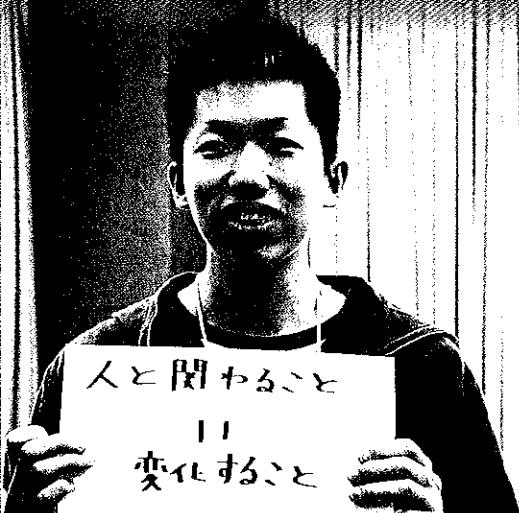 人と関わること
||
変化すること